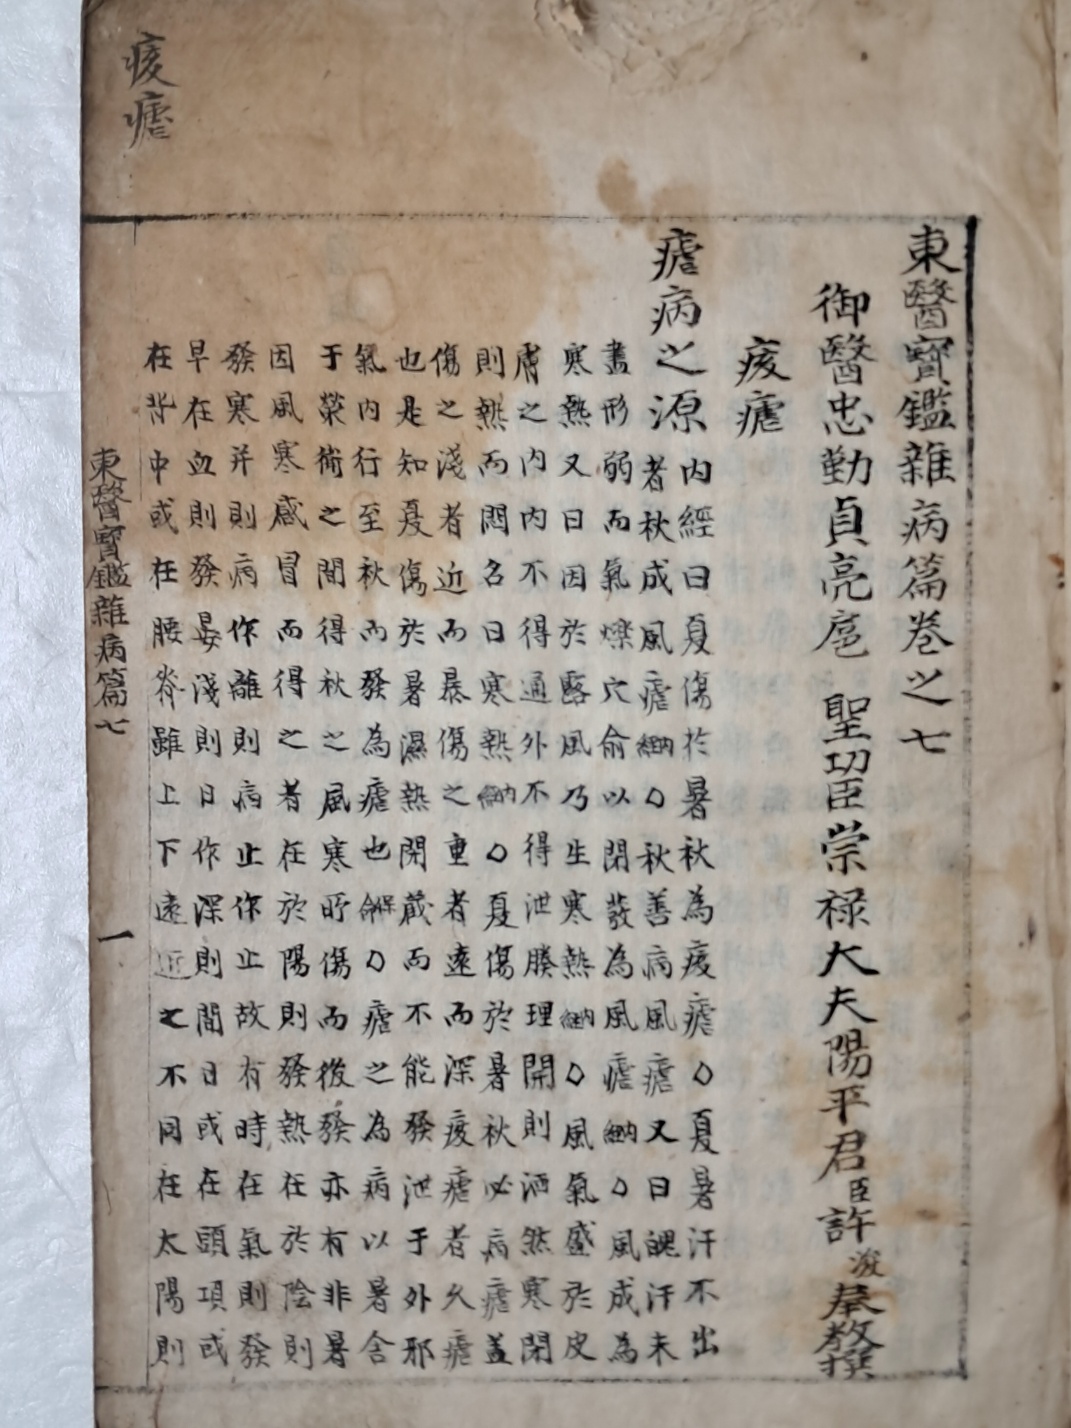 東醫寶鑑雜病篇卷之七
御醫忠勤貞亮扈 聖功臣崇祿大夫陽平君臣許浚奉教撰
痎瘧
瘧病之源 內經曰夏傷於暑秋為痎瘧○夏暑汗不出
者秋成風瘧綱○秋善病風瘧又曰魄汗未
盡形弱而氣爍穴俞以閉發為風瘧綱○風成為
寒熱又曰因於露風乃生寒熱綱○風氣盛於皮
膚之內內不得通外不得泄腠理開則洒然寒閉
則熱而悶名曰寒熱綱○夏傷於暑秋必病瘧盖
傷之淺者近而暴傷之重者遠而深痎瘧者久瘧
也是知夏傷於暑濕熱閉藏而不能發泄于外邪
氣內行至秋而發為瘧也保命○瘧之為病以暑舍
于榮衛之間得秋之風寒所傷而後發亦有非暑
因風寒感冒而得之者在於陽則發熱在於陰則
發寒并則病作離則病止作止故有時在氣則發
早在血則發晏淺則日作深則間日或在頭項或
在背中或在腰脊雖上下遠近之不同在太陽則
東醫寶鑑雜病篇七
一
痎瘧